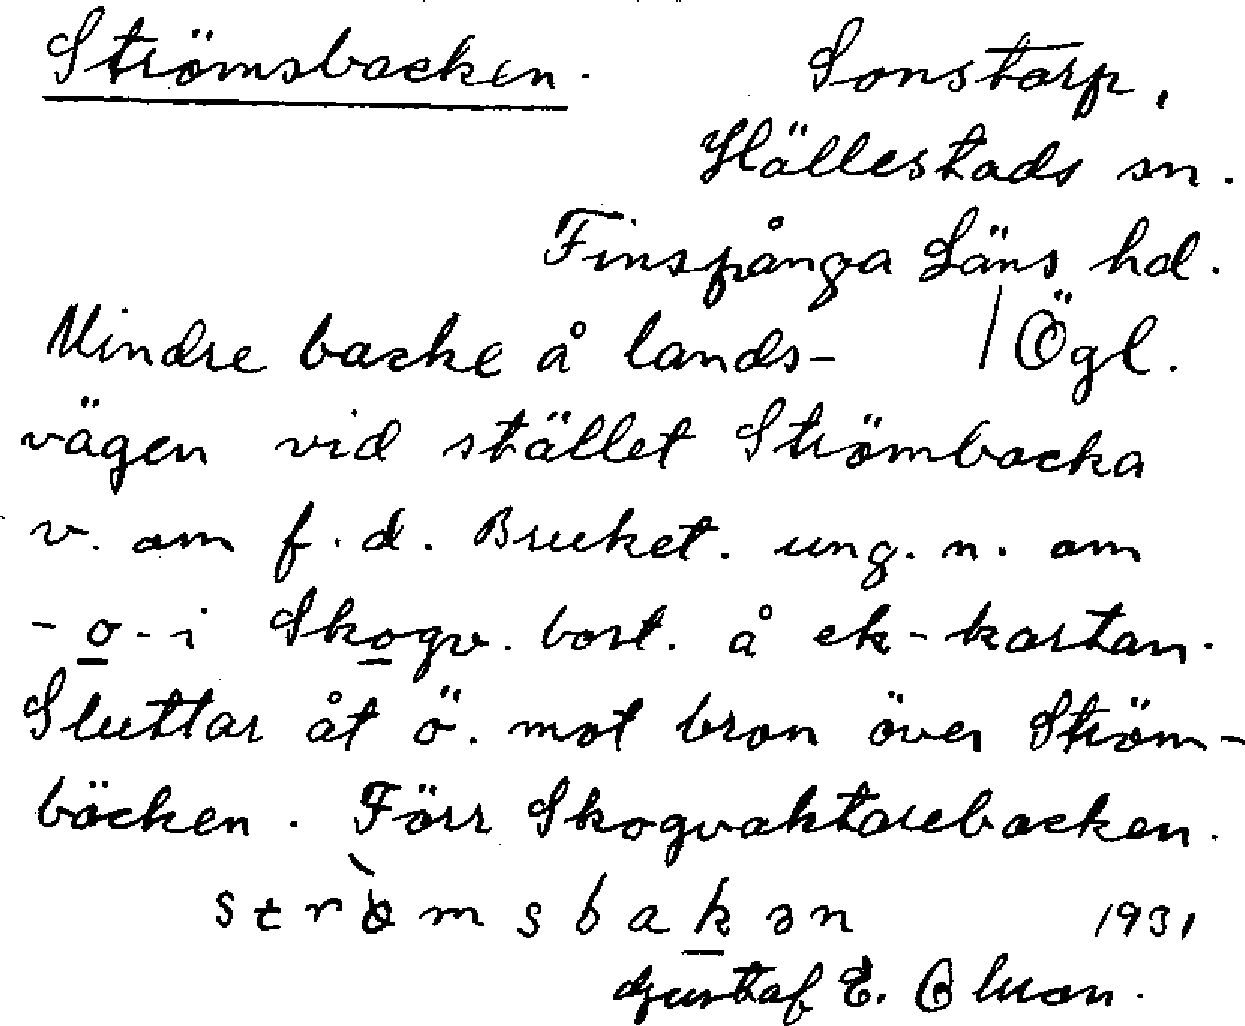 Strömsbacken. Sonstorp,
Hällestads sn.
Finspånga Läns hd.
Mindre backe å lands- / Ögl.
vägen vid stället Strömbacka
v. om f.d. Bruket. ung. n. om
-o-i Skogv. bost. å ek-kartan.
Sluttar åt ö. mot bron över Ström-
bäcken. Förr Skogvaktarebacken.
1931
Gustaf E.